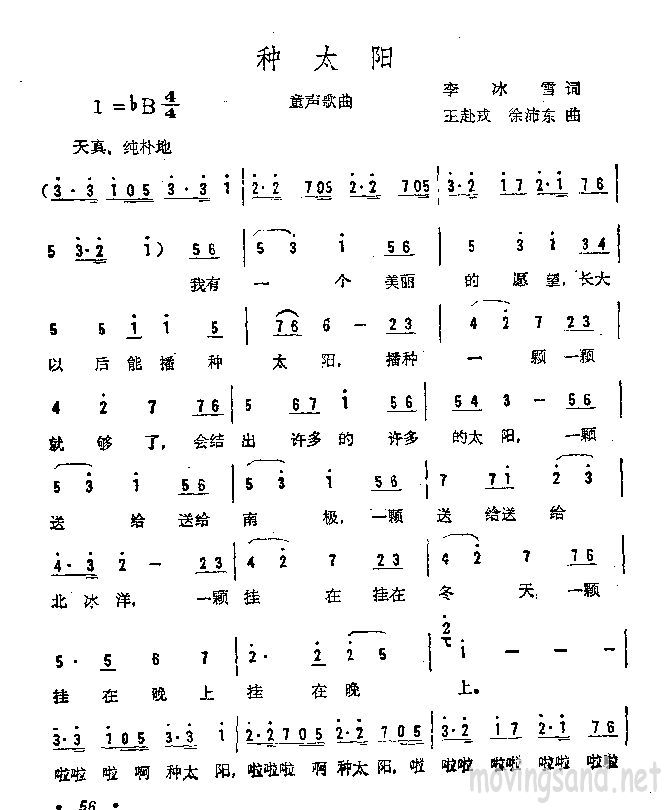 种 太 阳
1=♭B 4/4
童声歌曲
李 冰 雪 词
王赴戎 徐沛东 曲
天真、纯朴地
(3·3 105 3·3 1 | 2·2 705 2·2 705 | 3·2 17 2·1 76 |
5 3·2 1) 56 | 5 3 1 56 | 5 3 1 34 |
我有 一 个 美丽 的 愿 望，长大
5 5 1 1 5 | 76 6 - 23 | 4 2 7 23 |
以 后 能 播 种 太 阳， 播种 一 颗 一颗
4 2 7 76 | 5 67 1 56 | 54 3 - 56 |
就 够 了，会结 出 许多 的 许多 的太 阳， 一颗
5 3 1 56 | 5 3 1 56 | 7 71 2 3 |
送 给 送给 南 极，一颗 送 给送 给
4·3 2 - 23 | 4 2 7 23 | 4 2 7 56 |
北 冰 洋， 一颗 挂 在 挂在 冬 天，一颗
5· 5 6 7 | 2· 2 2 5 | 2 1 - - - |
挂 在 晚 上 挂 在 晚 上。
3·3 105 3·3 1 | 2·2705 2·2 705 | 3·2 17 2·1 76 |
啦啦 啦 啊 种太 阳，啦啦啦 啊 种太 阳，啦 啦啦 啦啦 啦啦 啦啦
• 56 •
movingsand.net